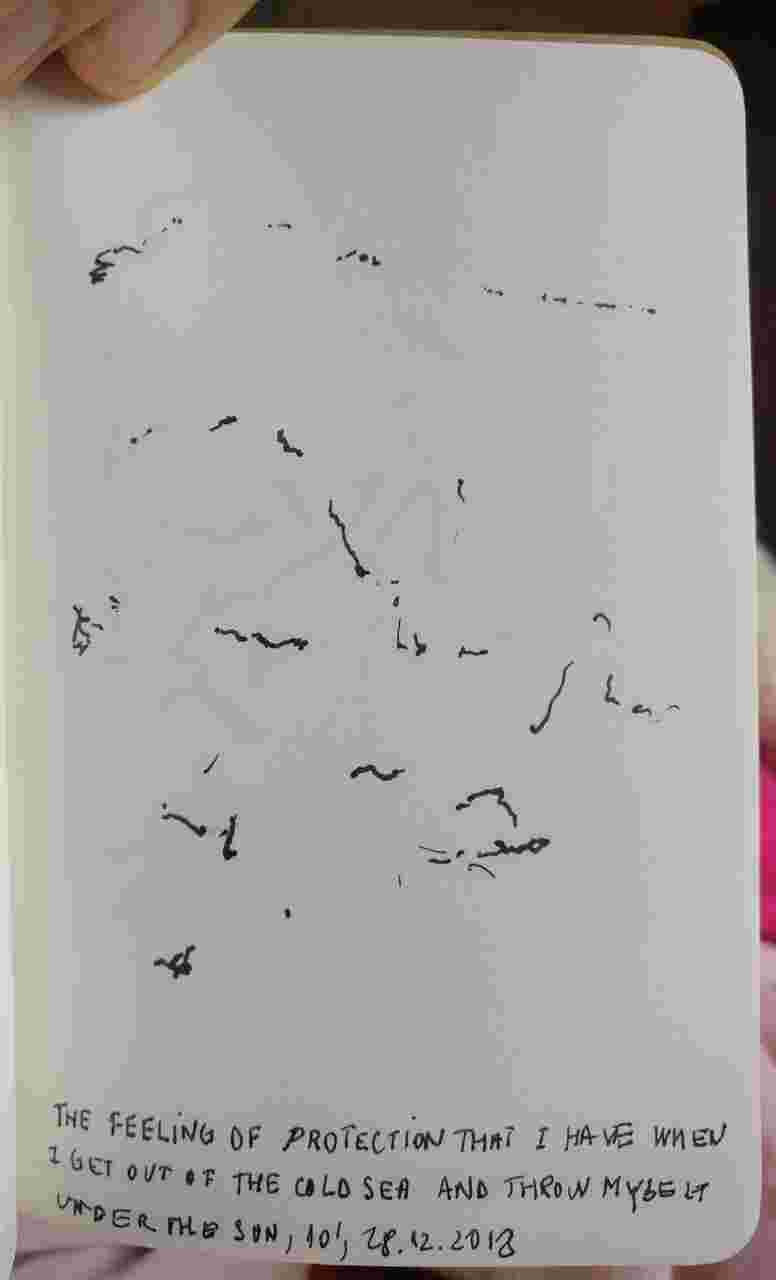 THE FEELING OF PROTECTION THAT I HAVE WHEN
I GET OUT OF THE COLD SEA AND THROW MYSELF
UNDER THE SUN, 10', 28.12.2018